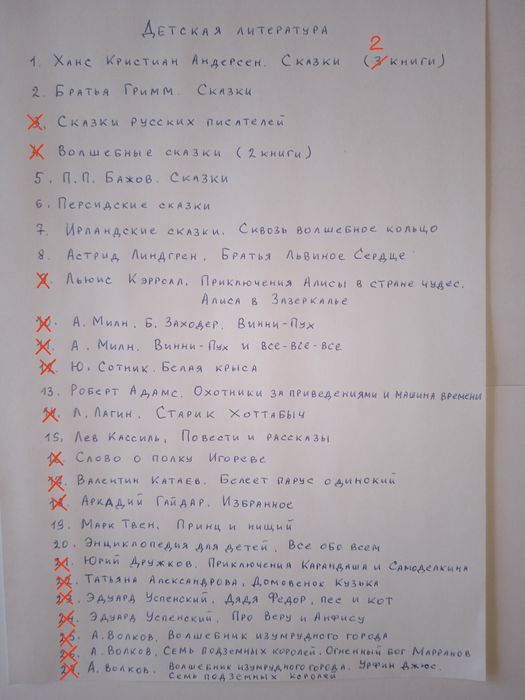 Детская литература
2
1. Ханс Кристиан Андерсен. Сказки (3 книги)
2. Братья Гримм. Сказки
3. Сказки русских писателей
4. Волшебные сказки (2 книги)
5. П.П. Бажов. Сказки
6. Персидские сказки
7. Ирландские сказки. Сквозь волшебное кольцо
8. Астрид Линдгрен. Братья Львиное Сердце
9. Льюис Кэрролл. Приключения Алисы в стране чудес.
Алиса в Зазеркалье
10. А. Милн. Б. Заходер. Винни-Пух
11. А. Милн. Винни-Пух и все-все-все
12. Ю. Сотник. Белая крыса
13. Роберт Адамс. Охотники за приведениями и машина времени
14. Л. Лагин. Старик Хоттабыч
15. Лев Кассиль. Повести и рассказы
16. Слово о полку Игореве
17. Валентин Катаев. Белеет парус одинокий
18. Аркадий Гайдар. Избранное
19. Марк Твен. Принц и нищий
20. Энциклопедия для детей. Все обо всем
21. Юрий Дружков. Приключения Карандаша и Самоделкина
22. Татьяна Александрова. Домовенок Кузька
23. Эдуард Успенский. Дядя Федор, пес и кот
24. Эдуард Успенский. Про Веру и Анфису
25. А. Волков. Волшебник изумрудного города
26. А. Волков. Семь подземных королей. Огненный бог Марранов
27. А. Волков. Волшебник изумрудного города. Урфин Джюс.
Семь подземных королей